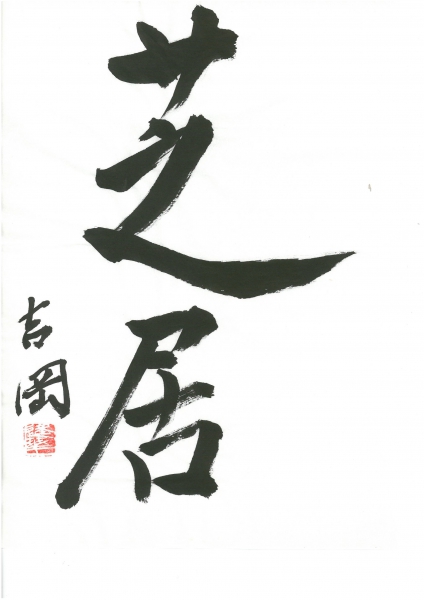 芝居
吉岡